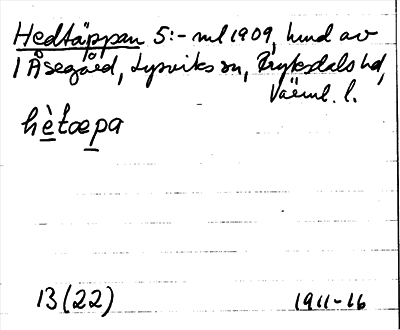 Hedtäppan 5:- ml 1909, hmd av
1 Åsegård, Lysviks sn, Fryksdals hd,
Värml. l.
hètœpa
13(22) 1911-16